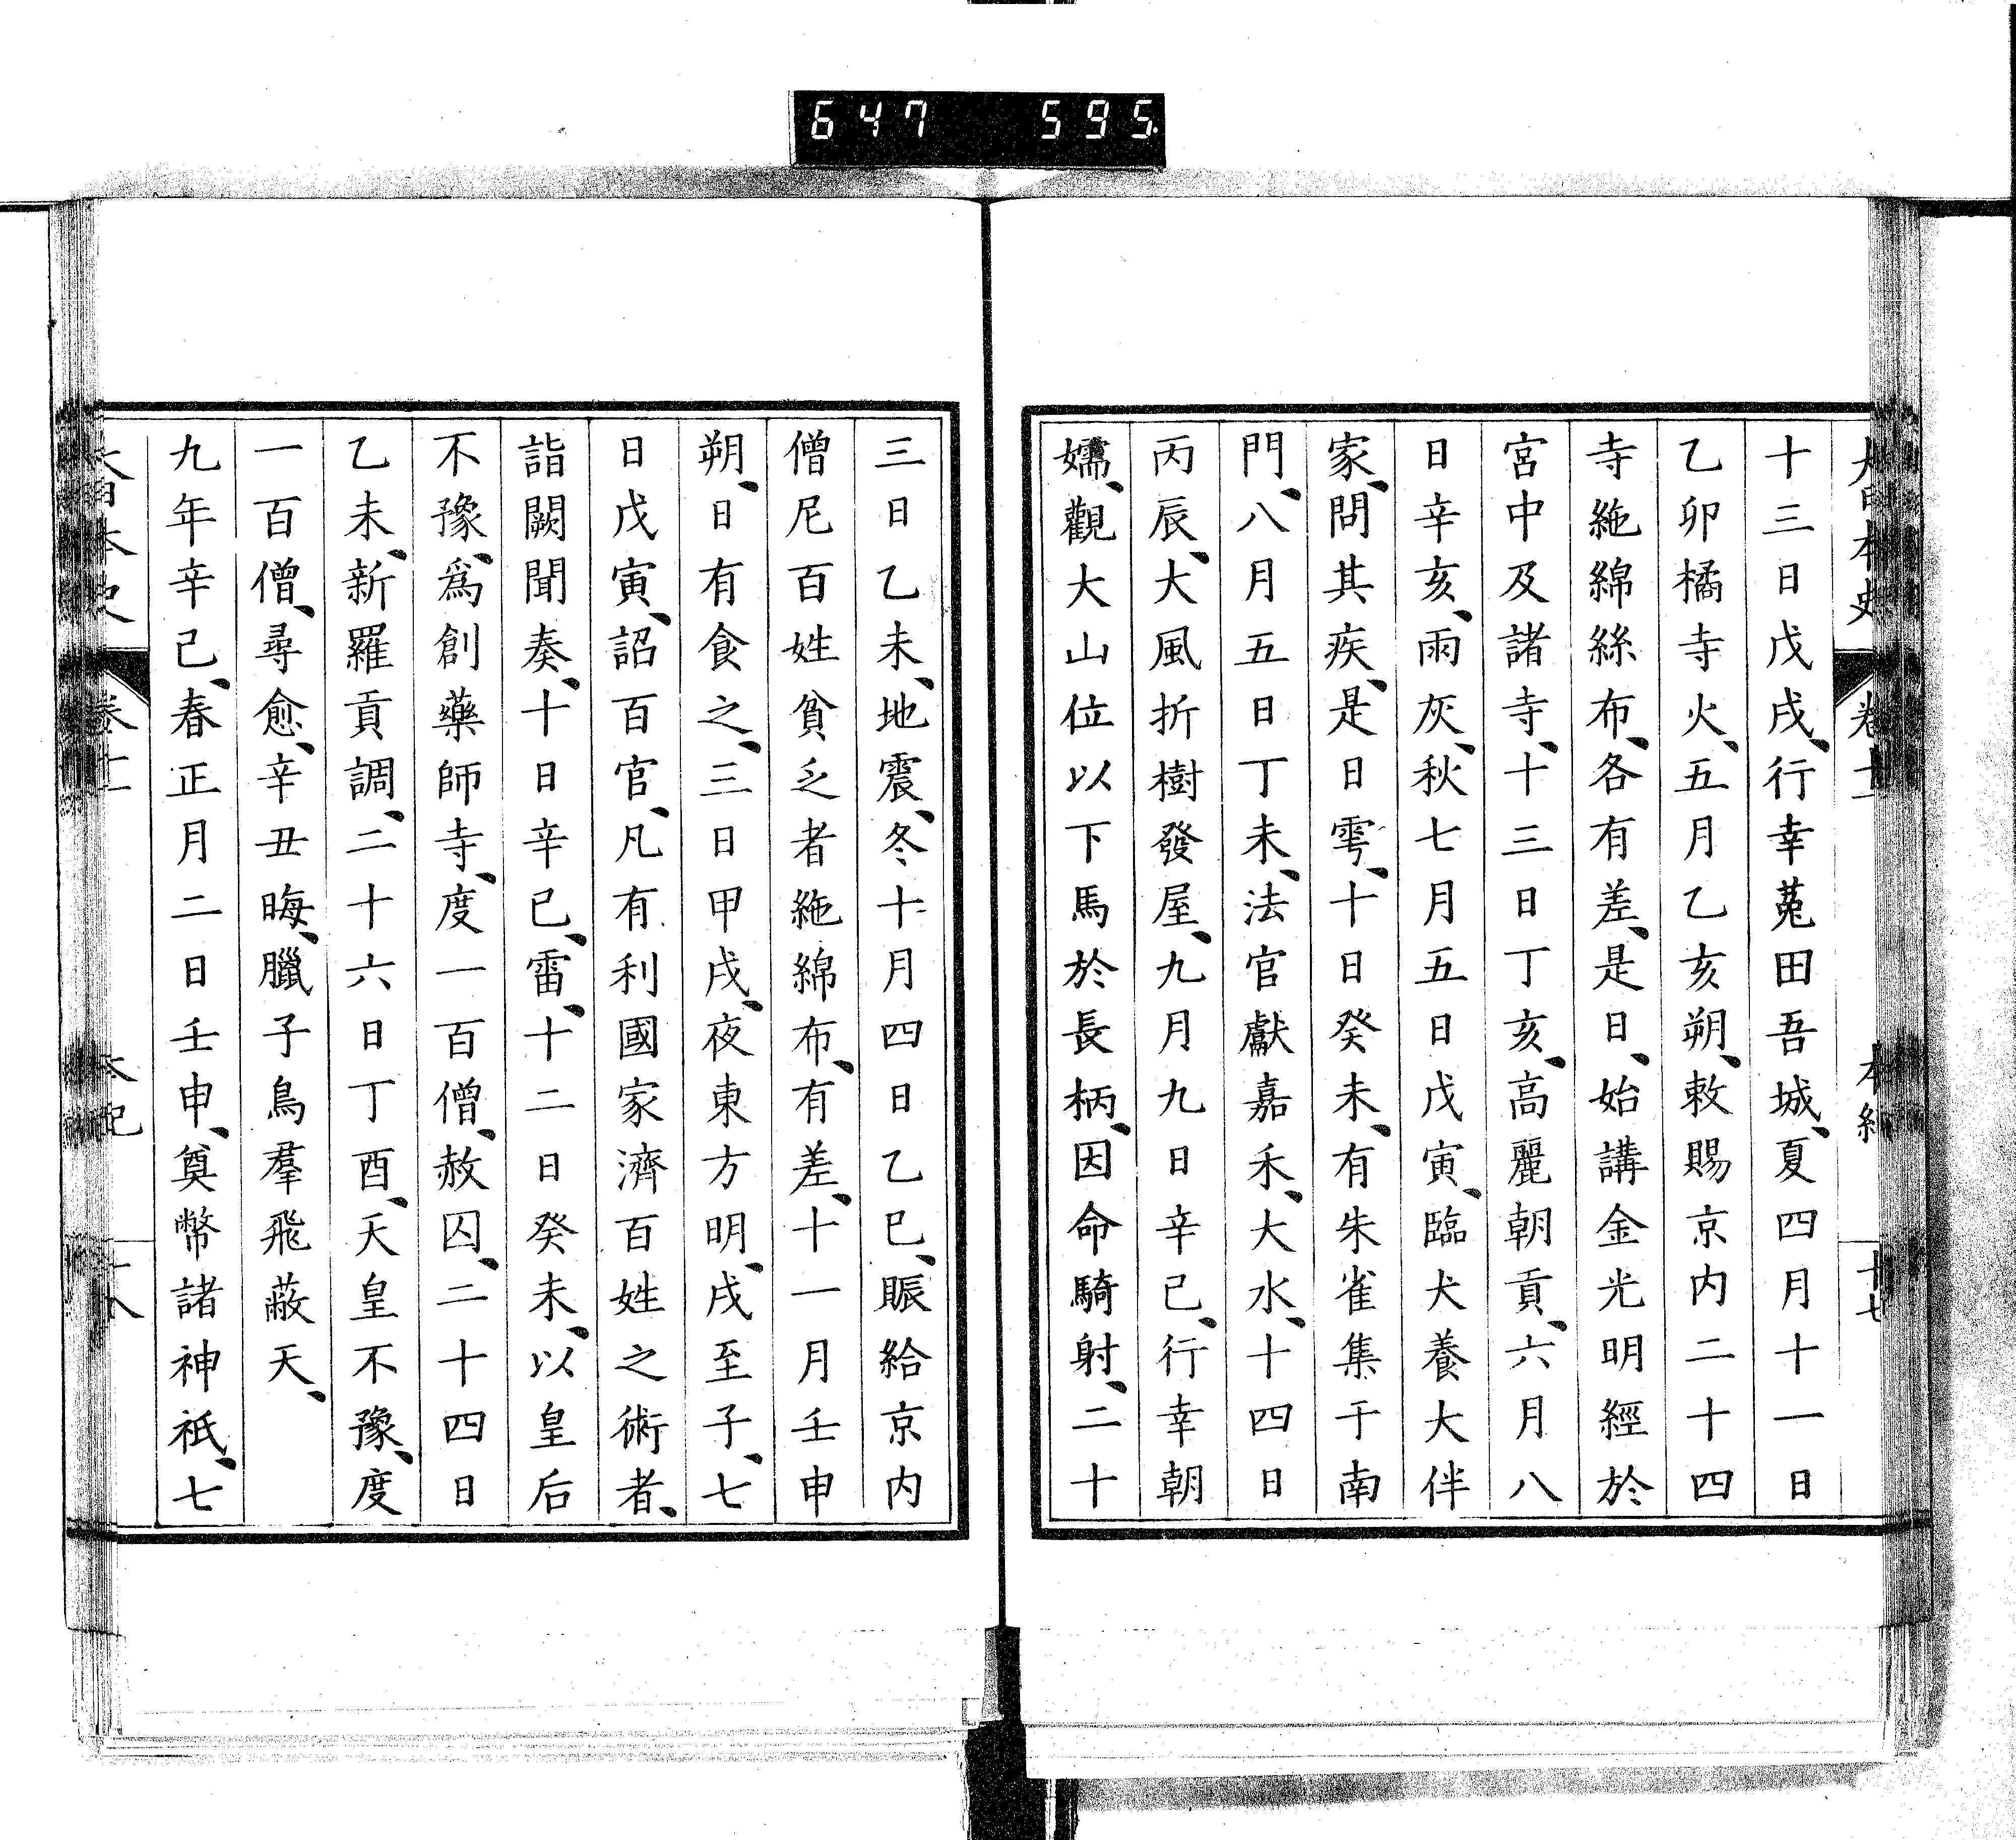 647 595
大日本史 卷十一 本紀 十七
十三日戊戌、行幸菟田吾城、夏四月十一日
乙卯橘寺火、五月乙亥朔、敕賜京内二十四
寺絁綿絲布、各有差、是日、始講金光明經於
宮中及諸寺、十三日丁亥、高麗朝貢、六月八
日辛亥、雨灰、秋七月五日戊寅、臨犬養大伴
家、問其疾、是日雩、十日癸未、有朱雀集于南
門、八月五日丁未、法官獻嘉禾、大水、十四日
丙辰、大風折樹發屋、九月九日辛巳、行幸朝
嬬、觀大山位以下馬於長柄、因命騎射、二十
三日乙未、地震、冬十月四日乙巳、賑給京内
僧尼百姓貧乏者絁綿布、有差、十一月壬申
朔、日有食之、三日甲戌、夜東方明、戌至子、七
日戊寅、詔百官、凡有利國家濟百姓之術者、
詣闕聞奏、十日辛巳、雷、十二日癸未、以皇后
不豫、爲創藥師寺、度一百僧、赦囚、二十四日
乙未、新羅貢調、二十六日丁酉、天皇不豫、度
一百僧、尋愈、辛丑晦、臘子鳥羣飛蔽天、
九年辛巳、春正月二日壬申、奠幣諸神祇、七
大日本史 卷十一 本紀